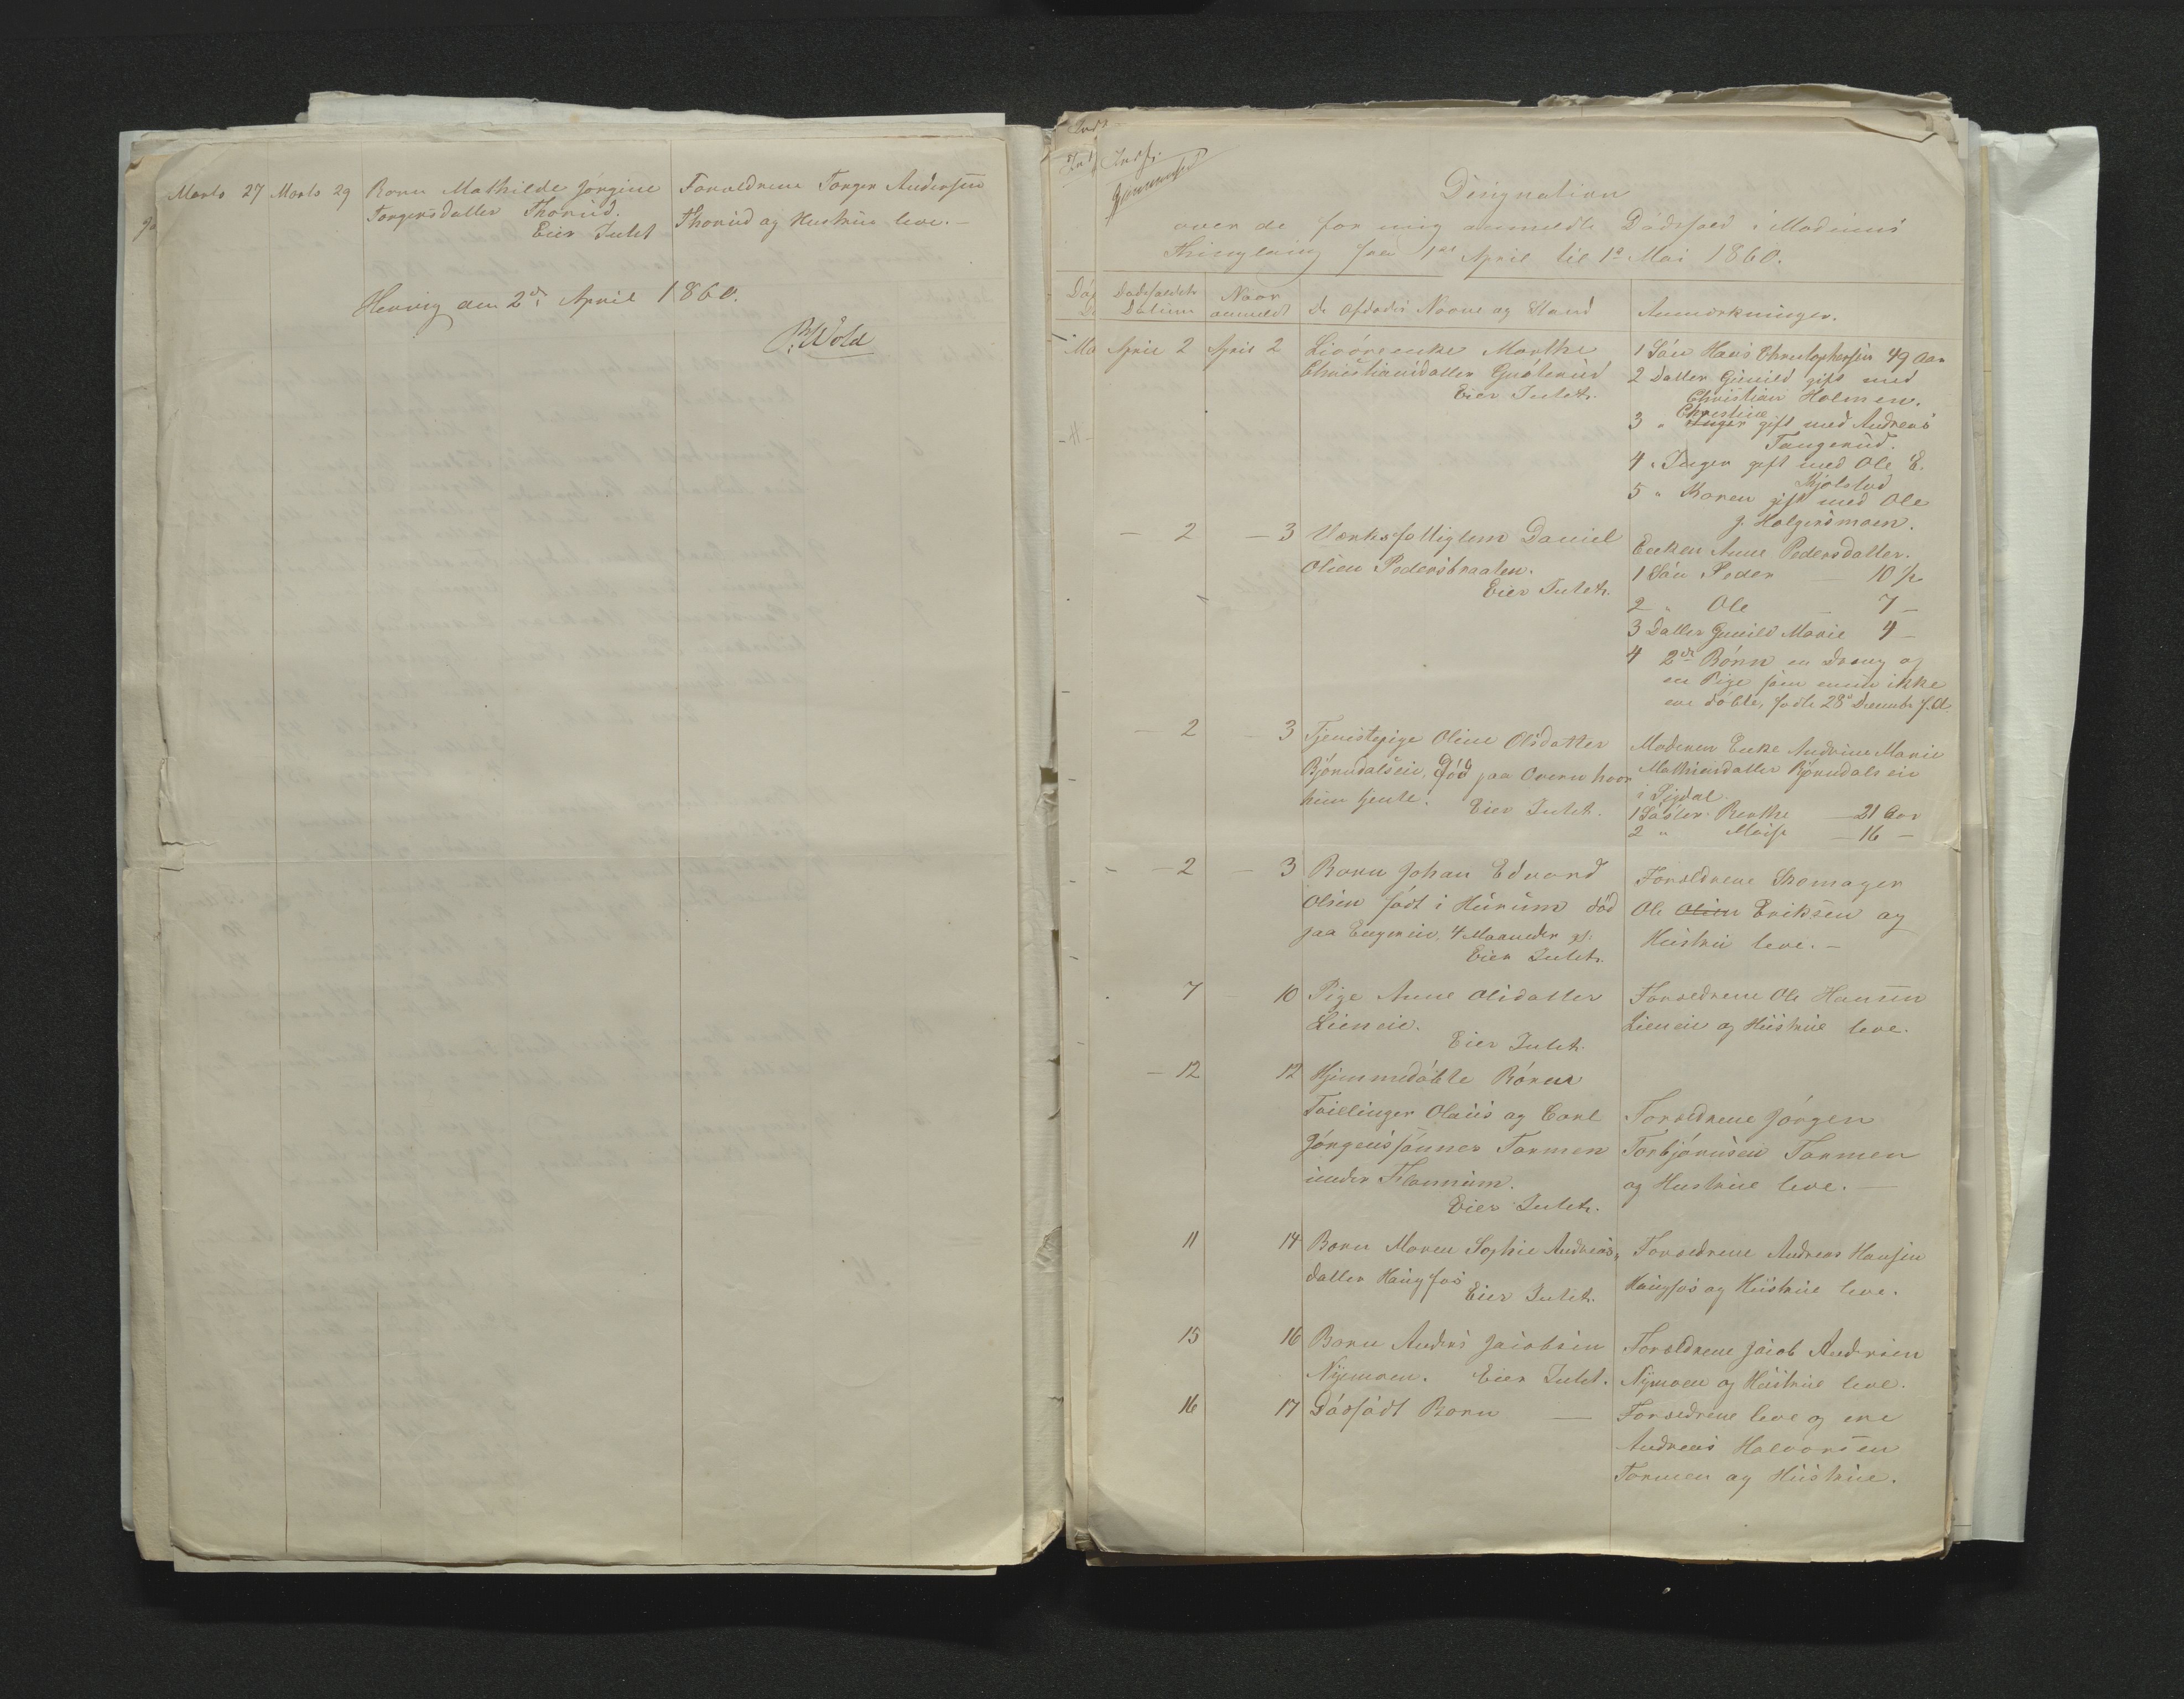 Marts 27 Marts 29 Barn Mathilde Jörgine
Torgersdatter Thorud.
Eier Intet
Forældrene Torger Andersen
Thorud og Hustrue leve. —
den 2den April 1860.
Wold
Designation
over de for mig anmeldte Dödsfald i Modums
Thinglaug fra 1ste April til 1ste Mai 1860.
Dödsfaldets Datum
Naar anmeldt
De Afdødes Navne og Stand
Anmærkninger.
April 2 April 2 Marthe
Christiansdatter
Eier Intet.
1 Sön Hans Christophersen 49 Aar
2 Datter Gunild gift med
Christian Holmen.
3 " Christine gift med Andreas
Tangerud.
4 " Inger gift med Ole E.
Kjölstad
5 " Karen gift med Ole
J. Holgersmoen.
— 2 — 3 Værksfattiglem Daniel
Olsen Pedersbraaten.
Eier Intet.
Enken Anne Pedersdatter.
1 Sön Peder — 10 ½
2 " Ole — 7 —
3 Datter Gunild Marie 4 —
4 2de Börn en Dreng og
en Pige som endnu ikke
ere döbte, födte 28de Decembr f.A.
— 2 — 3 Tjenestepige Oline Olsdatter
Björndalseie, Död paa Overn hvor
hun tjente. Eier Intet.
Moderen Enke Andrine Marie
Mathisdatter Björndalseie
i Sigdal.
1 Söster Berthe — 21 Aar
2 " — 16 —
— 2 — 3 Barn Johan Edvard
Olsen födt i Hurum död
paa 4 Maaneder gl.
Eier Intet.
Forældrene Skomager
Ole Olsen Eriksen og
Hustru leve. —
7 — 10 Pige Anne Olsdatter
Lieneie.
Eier Intet.
Forældrene Ole Hansen
Lieneie og Hustrue leve.
— 12 12 Hjemmedöbte Börn
Tvillinger Olaus og Carl
Jörgenssönner Tormen
under
Eier Intet.
Forældrene Jörgen
Torbjörnsen Tormen
og Hustrue leve. —
11 14 Barn Maren Sophie Andreas-
datter Haugfos
Eier Intet.
Forældrene Andreas Hansen
Haugfos og Hustrue leve.
15 16 Barn Anders Jacobsen
Nymoen. Eier Intet.
Forældrene Jacob Andersen
Nymoen og Hustrue leve.
16 17 Dödfödt Barn —
Forældrene leve og ere
Andreas Halvorsen
Tormen og Hustrue.